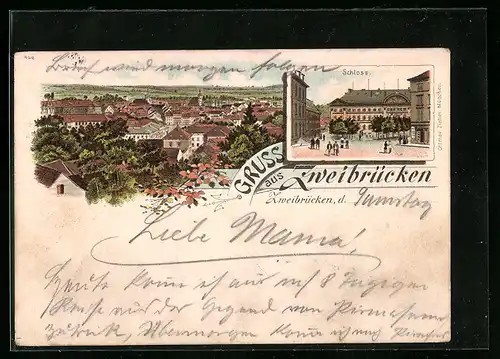 Brief wird morgen folgen
Schloss.
Ottmar Zieher, München.
GRUSS
aus Zweibrücken
Zweibrücken, d. Samstag
Liebe Mama!
Heute komme ich auf 8 tägiger
Reise aus der Gegend von Pirmasens
zurück, Übermorgen komme ich nach